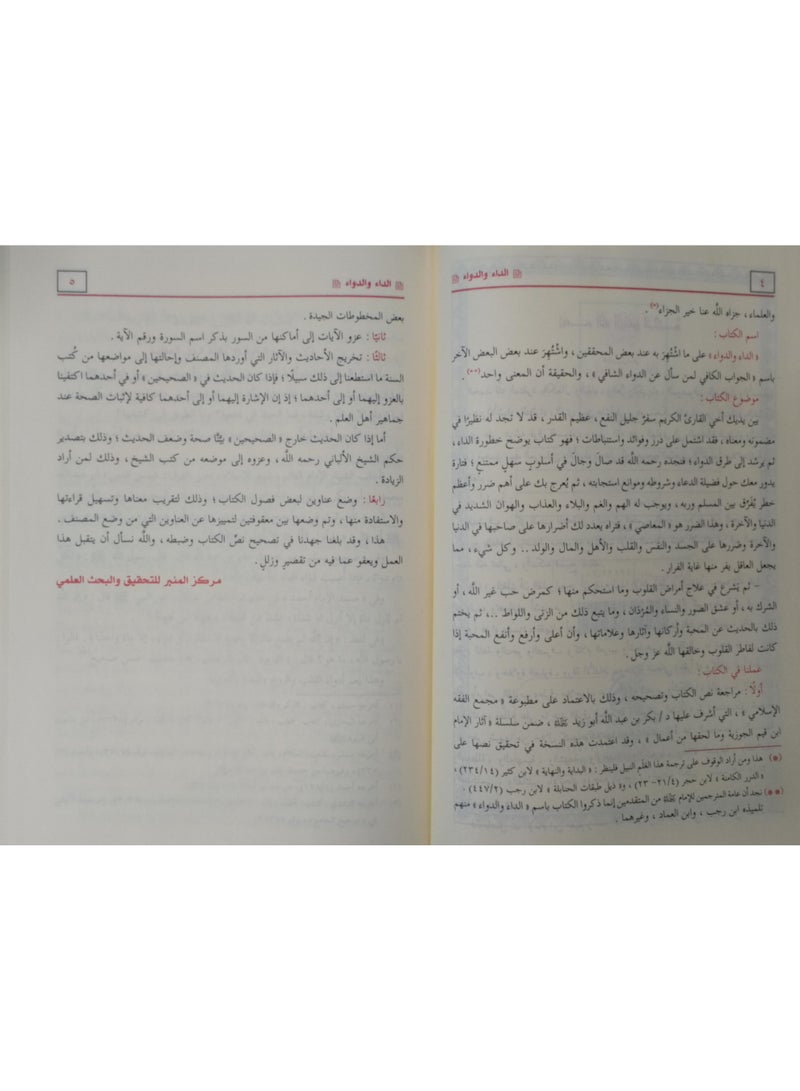 ٤
الداء والدواء
والعلماء، جزاه اللَّه عنا خير الجزاء(*) .
اسم الكتاب :
« الداء والدواء » على ما اشْتُهِرَ به عند بعض المحققين، واشْتُهِرَ عند بعض البعض الآخر
باسم « الجواب الكافي لمن سأل عن الدواء الشافي » ، والحقيقة أن المعنى واحد(**) .
موضوع الكتاب :
بين يديك أخي القارئ الكريم سفرٌ جليل النفع ، عظيم القدر ، قد لا تجد له نظيرًا في
مضمونه ومعناه، فقد اشتمل على دررٍ وفوائد واستنباطات ؛ فهو كتاب يوضح خطورة الداء،
ثم يرشد إلى طرق الدواء؛ فنجده رحمه اللَّه قد صالَ وجالَ في أسلوبٍ سهلٍ ممتنعٍ ؛ فتارة
يدور معك حول فضيلة الدعاء وشروطه وموانع استجابته ، ثم يُعرج بك على أهم ضرر وأعظم
خطر يُفَرِّق بين المسلم وربه، ويوجب له الهم والغم والبلاء والعذاب والهوان الشديد في
الدنيا والآخرة، وهذا الضرر هو « المعاصي » ، فتراه يعدد لك أضرارها على صاحبها في الدنيا
والآخرة وضررها على الجسد والنفس والقلب والأهل والمال والولد .. وكل شيء، مما
يجعل العاقل يفر منها غاية الفرار .
– ثم يَشرع في علاج أمراض القلوب وما استحكم منها ؛ كمرض حب غير اللَّه ، أو
الشرك به ، أو عشق الصور والنساء والمُرْدَان ، وما يتبع ذلك من الزنى واللواط ..، ثم يختم
ذلك بالحديث عن المحبة وأركانها وآثارها وعلاماتها ، وأن أعلى وأرفع وأنفع المحبة إذا
كانت لفاطر القلوب وخالقها اللَّه عز وجل .
عملنا في الكتاب :
أولًا : مراجعة نص الكتاب وتصحيحه ، وذلك بالاعتماد على مطبوعة « مجمع الفقه
الإسلامي » ، التي أشرف عليها د / بكر بن عبد اللَّه أبو زيد رحمه الله ، ضمن سلسلة « آثار الإمام
ابن قيم الجوزية وما لحقها من أعمال » ، وقد اعتمدت هذه النسخة في تحقيق نصها على
(*) هذا ومن أراد الوقوف على ترجمة هذا العَلَم النبيل فلينظر : « البداية والنهاية » لابن كثير (٢٣٤/١٤) ،
« الدرر الكامنة » لابن حجر (٢١/٤– ٢٣) ، و« ذيل طبقات الحنابلة » لابن رجب (٤٤٧/٢) .
(**) نجد أن عامة المترجمين للإمام رحمه الله من المتقدمين إنما ذكروا الكتاب باسم « الداء والدواء » منهم
تلميذه ابن رجب ، وابن العماد ، وغيرهما .
الداء والدواء
٥
بعض المخطوطات الجيدة .
ثانيًا : عزو الآيات إلى أماكنها من السور بذكر اسم السورة ورقم الآية .
ثالثًا : تخريج الأحاديث والآثار التي أوردها المصنف وإحالتها إلى مواضعها من كُتب
السنة ما استطعنا إلى ذلك سبيلًا ؛ فإذا كان الحديث في « الصحيحين » أو في أحدهما اكتفينا
بالعزو إليهما أو إلى أحدهما ؛ إذ إن الإشارة إليهما أو إلى أحدهما كافية لإثبات الصحة عند
جماهير أهل العلم .
أما إذا كان الحديث خارج « الصحيحين » بيَّنَّا صحة وضعف الحديث ؛ وذلك بتصدير
حكم الشيخ الألباني رحمه اللَّه، وعزوه إلى موضعه من كتب الشيخ، وذلك لمن أراد
الزيادة .
رابعًا : وضع عناوين لبعض فصول الكتاب ؛ وذلك لتقريب معناها وتسهيل قراءتها
والاستفادة منها ، وتم وضعها بين معقوفتين لتمييزها عن العناوين التي من وضع المصنف .
هذا ، وقد بلغنا جهدنا في تصحيح نصِّ الكتاب وضبطه ، واللَّه نسأل أن يتقبل هذا
العمل ويعفو عما فيه من تقصيرٍ وزللٍ .
مركز المنير للتحقيق والبحث العلمي